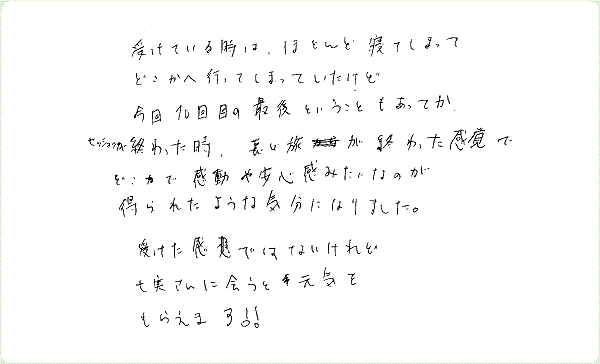 受けている時は、ほとんど寝てしまって
どこかへ行ってしまっていたけど
今回10回目の最後ということもあってか
セッションが終わった時、長い旅が終わった感覚で
どこかで感動や安心感みたいなのが
得られたような気分になりました。
受けた感想ではないけれど
七実さんに会うと元気を
もらえます!!